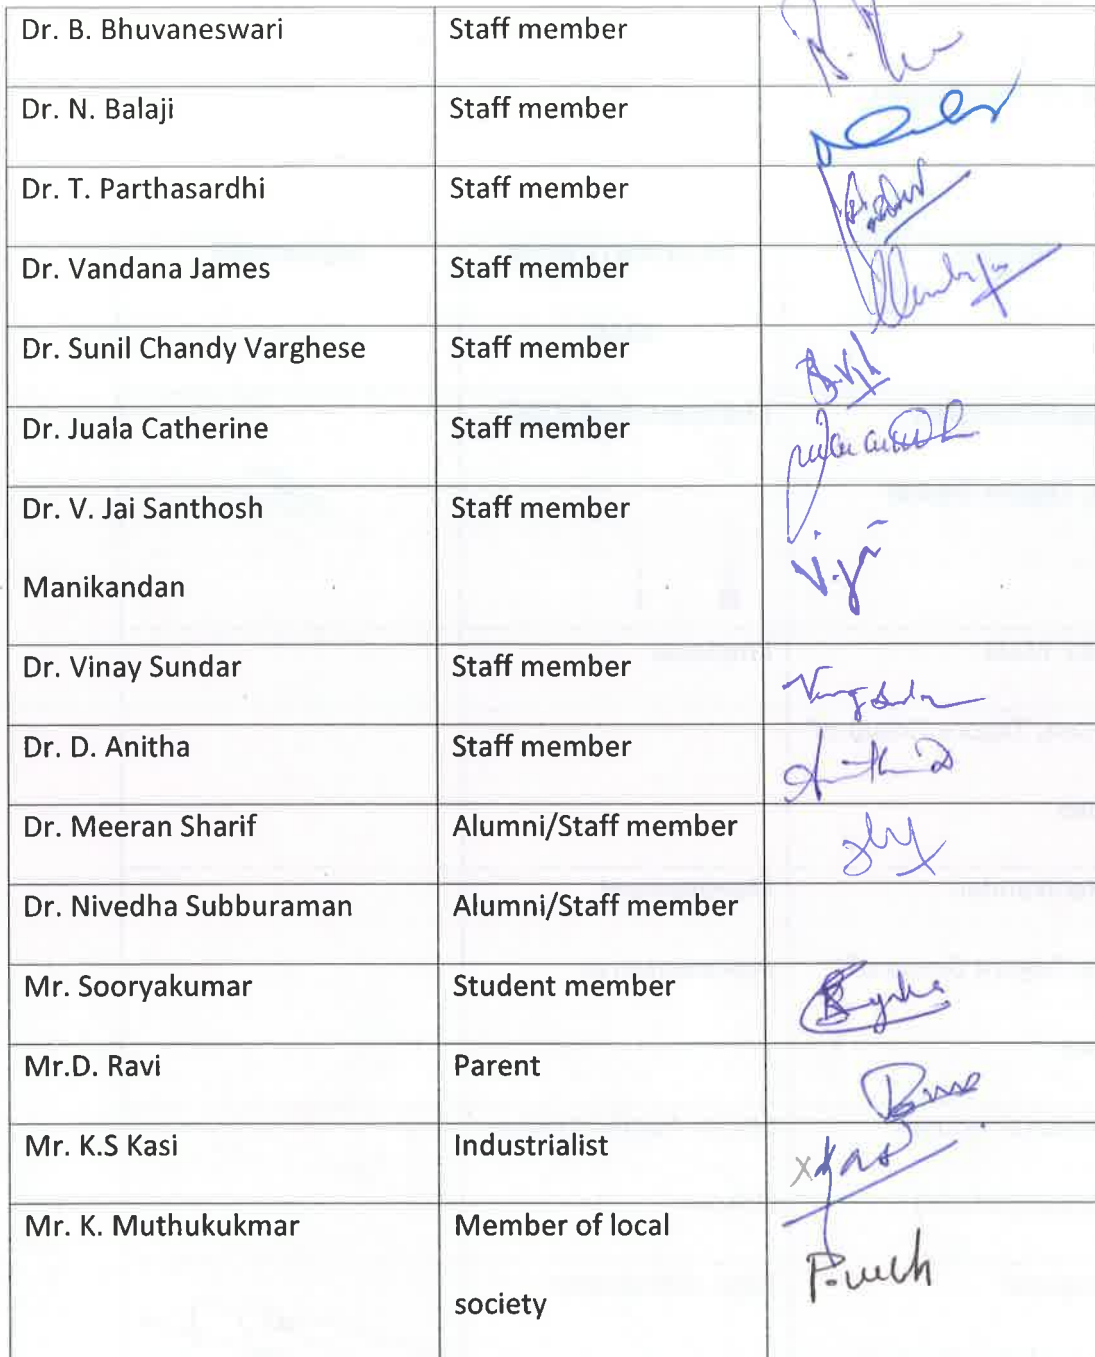 Dr. B. Bhuvaneswari Staff member
Dr. N. Balaji Staff member
Dr. T. Parthasardhi Staff member
Dr. Vandana James Staff member
Dr. Sunil Chandy Varghese Staff member
Dr. Juala Catherine Staff member
Dr. V. Jai Santhosh Staff member
Manikandan
Dr. Vinay Sundar Staff member
Dr. D. Anitha Staff member
Dr. Meeran Sharif Alumni/Staff member
Dr. Nivedha Subburaman Alumni/Staff member
Mr. Sooryakumar Student member
Mr.D. Ravi Parent
Mr. K.S Kasi Industrialist
Mr. K. Muthukukmar Member of local
society